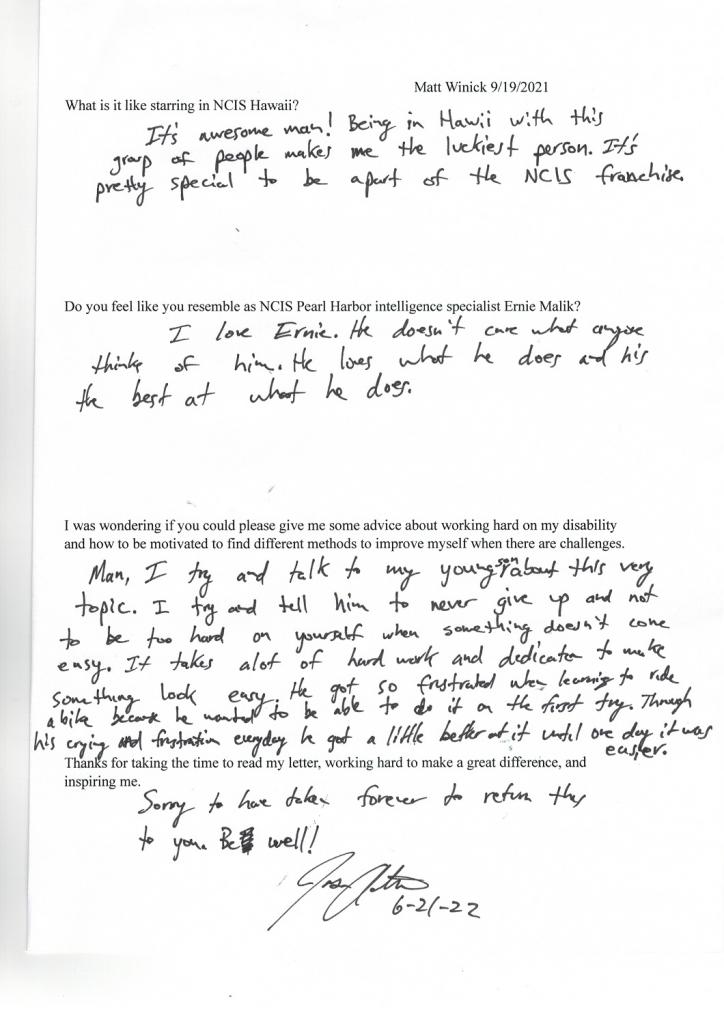 Matt Winick 9/19/2021
What is it like starring in NCIS Hawaii?
It's awesome man! Being in Hawii with this
group of people makes me the luckiest person. It's
pretty special to be apart of the NCIS franchise.
Do you feel like you resemble as NCIS Pearl Harbor intelligence specialist Ernie Malik?
I love Ernie. He doesn't care what anyone
thinks of him. He loves what he does and his
the best at what he does.
I was wondering if you could please give me some advice about working hard on my disability
and how to be motivated to find different methods to improve myself when there are challenges.
Man, I try and talk to my young son about this very
topic. I try and tell him to never give up and not
to be too hard on yourself when something doesn't come
easy. It takes alot of hard work and dedication to make
something look easy. He got so frustrated when learning to ride
a bike because he wanted to be able to do it on the first try. Through
his crying and frustration everyday he got a little better at it until one day it was
easier.
Thanks for taking the time to read my letter, working hard to make a great difference, and
inspiring me.
Sorry to have taken forever to return this
to you. Be well!
6-21-22